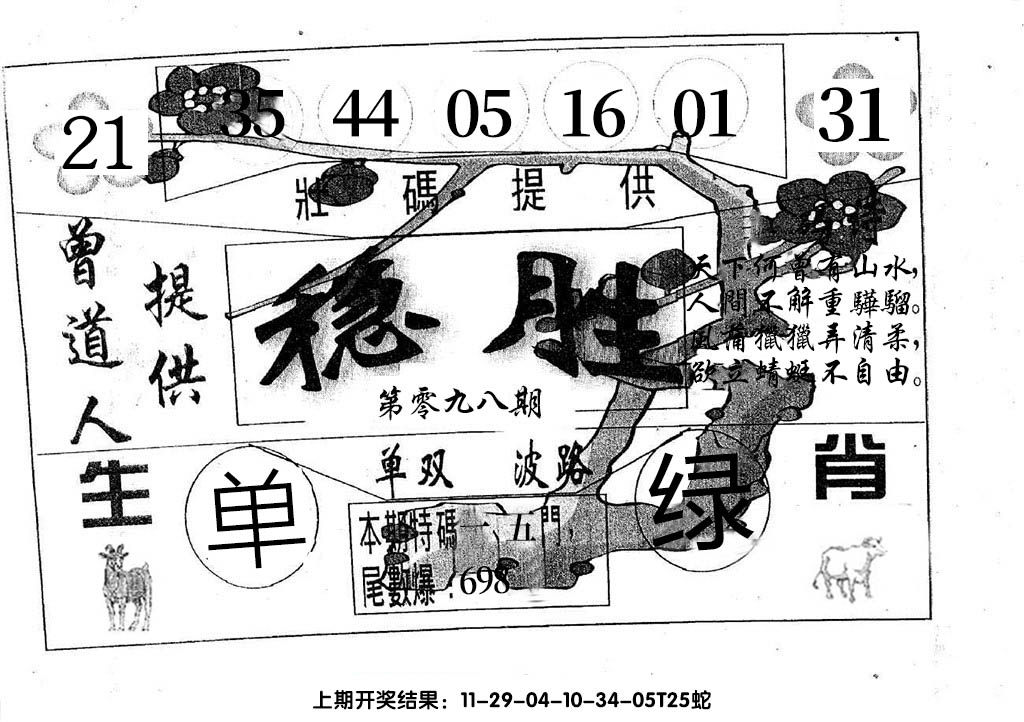 21 35 44 05 16 01 31
壯碼提供
特
曾道人
提供
稳胜
第零九八期
天下何曾有山水，
人間不解重驊騮。
風蒲獵獵弄清柔，
欲立蜻蜓不自由。
生肖
单双 波路
单
绿
本期特碼一、五門，
尾數爆：698
上期开奖结果：11-29-04-10-34-05T25蛇